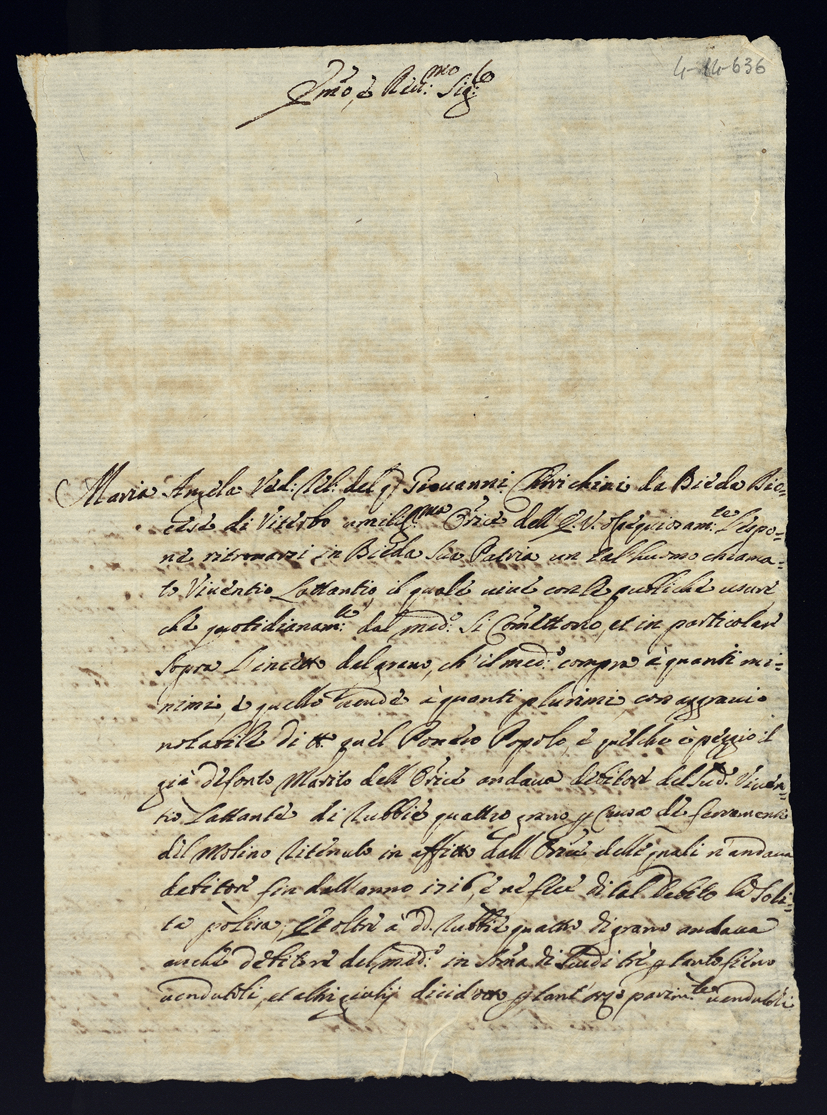 4-14-636
Ill͂mo, e Reu:mo Sig:re
Maria Angela Ved: Rel: del q Giouanni Chirichini da Bieda Dio=
cesi di Viterbo umiliss:ma Or͂ice dell' V. S. ossequiosam:te l'espo=
ne ritrouarsi in Bieda sua Patria un tal huomo chiama=
to Viuentio Lattantio il quale uiue con le publiche usure
che quotidianam:te dal med:o si com͂ettono, et in particolare
sopra l'incetta del grano, ch' il med:o compra à quanti mi=
nimi, e quello uende à quanti plurimi con aggrauio
notabile di tt:o quel Pouero Popolo, e quel che è peggio il
già defonto Marito dell' Or͂ice andaua debitore del sud:o Viuen=
tio Lattantio di Rubbie quattro grano p causa de ferramenti
del Molino ritenuto in affitto dall' Or͂ice delli quali n'andaua
debitore fin dall' anno 1716, e ne fece di tal debito la soli=
ta polisa, et oltre à dd. Rubbie quattro di grano andaua
anche debitore del med:o in som͂a di scudi trè p tanto fieno
uendutoli, et altri giulij dicidotto p tant' orzo parim:te uendutoli